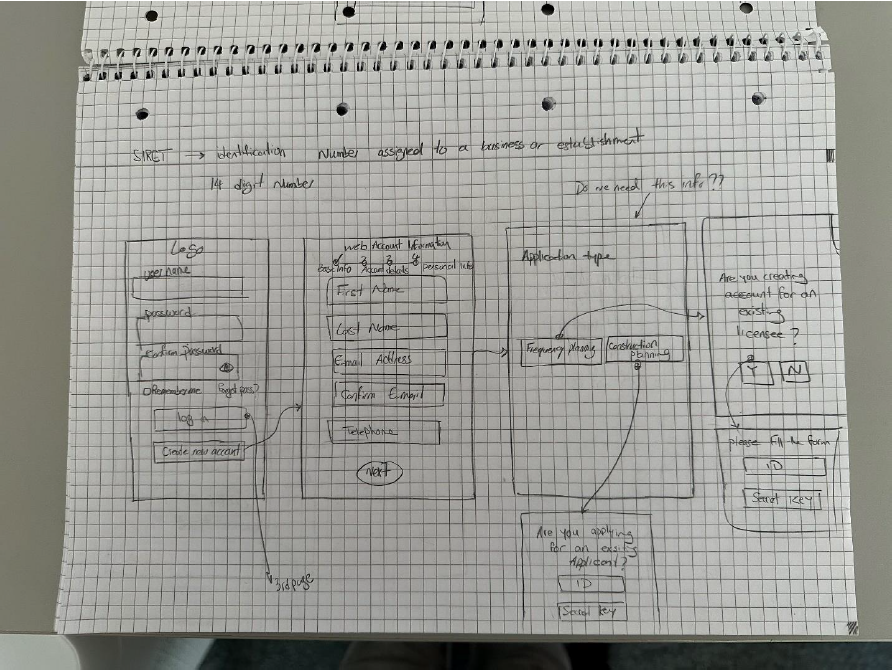 SIRET → identification Number assigned to a business or establishment
14 digit Number
Do we need this info??
Logo
username
password
Confirm password
Remember me Forgot pass?
log in
Create new account
3rd page
web Account Information
Basic Info Account details personal info
First Name
Last Name
Email Address
Confirm Email
Telephone
Next
Application type
Frequency planning
Construction planning
Are you applying
for an existing
Applicant?
ID
Secret key
Are you creating
account for an
existing
licensee?
Y N
please fill the form
ID
Secret key